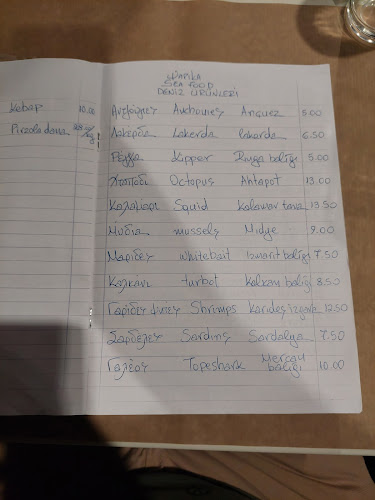 Kebap 10.00
ΨΑΡΙΚΑ
SEA FOOD
DENIZ ÜRÜNLERI
Αντζούγιες Anchovies Ançuez 5.00
Λακέρδα Lakerda lakerda 6.50
Ρέγγα Kipper Ringa balığı 5.00
Χταπόδι Octopus Ahtapot 13.00
Καλαμάρι Squid Kalamar tava 13.50
Μύδια mussels Midye 9.00
Μαρίδες whitebait Izmarit balığı 7.50
Καλκάνι turbot Kalkan balığı 8.50
Γαρίδες Shrimps karides izgara 12.50
Σαρδέλες Sardins Sardalya 7.50
Γαλέος Topeshark balığı 10.00